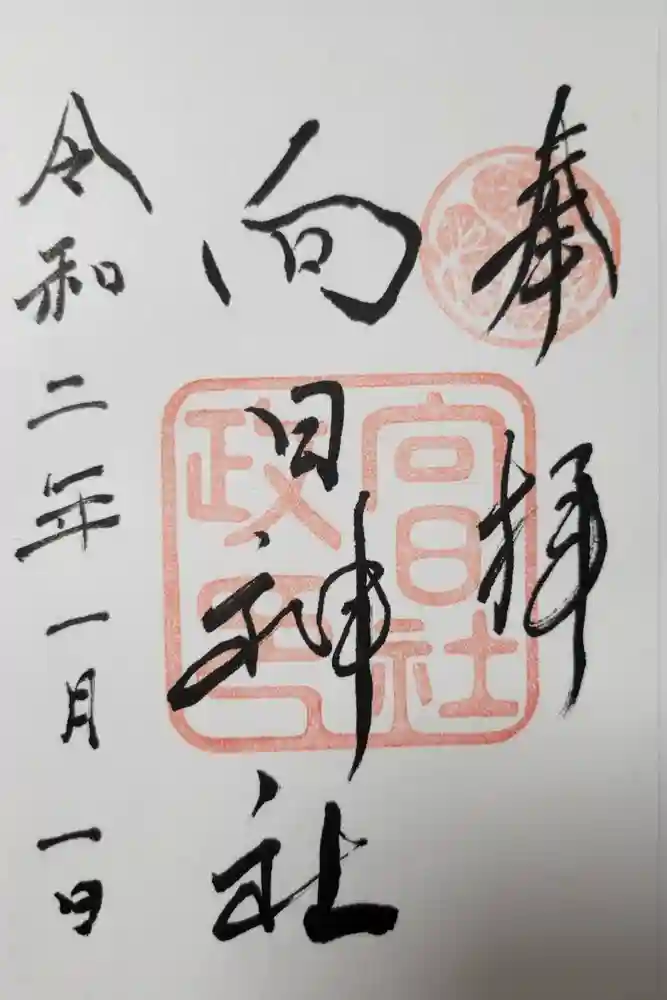 奉拝
向日神社
令和二年一月一日
向日社
政所印